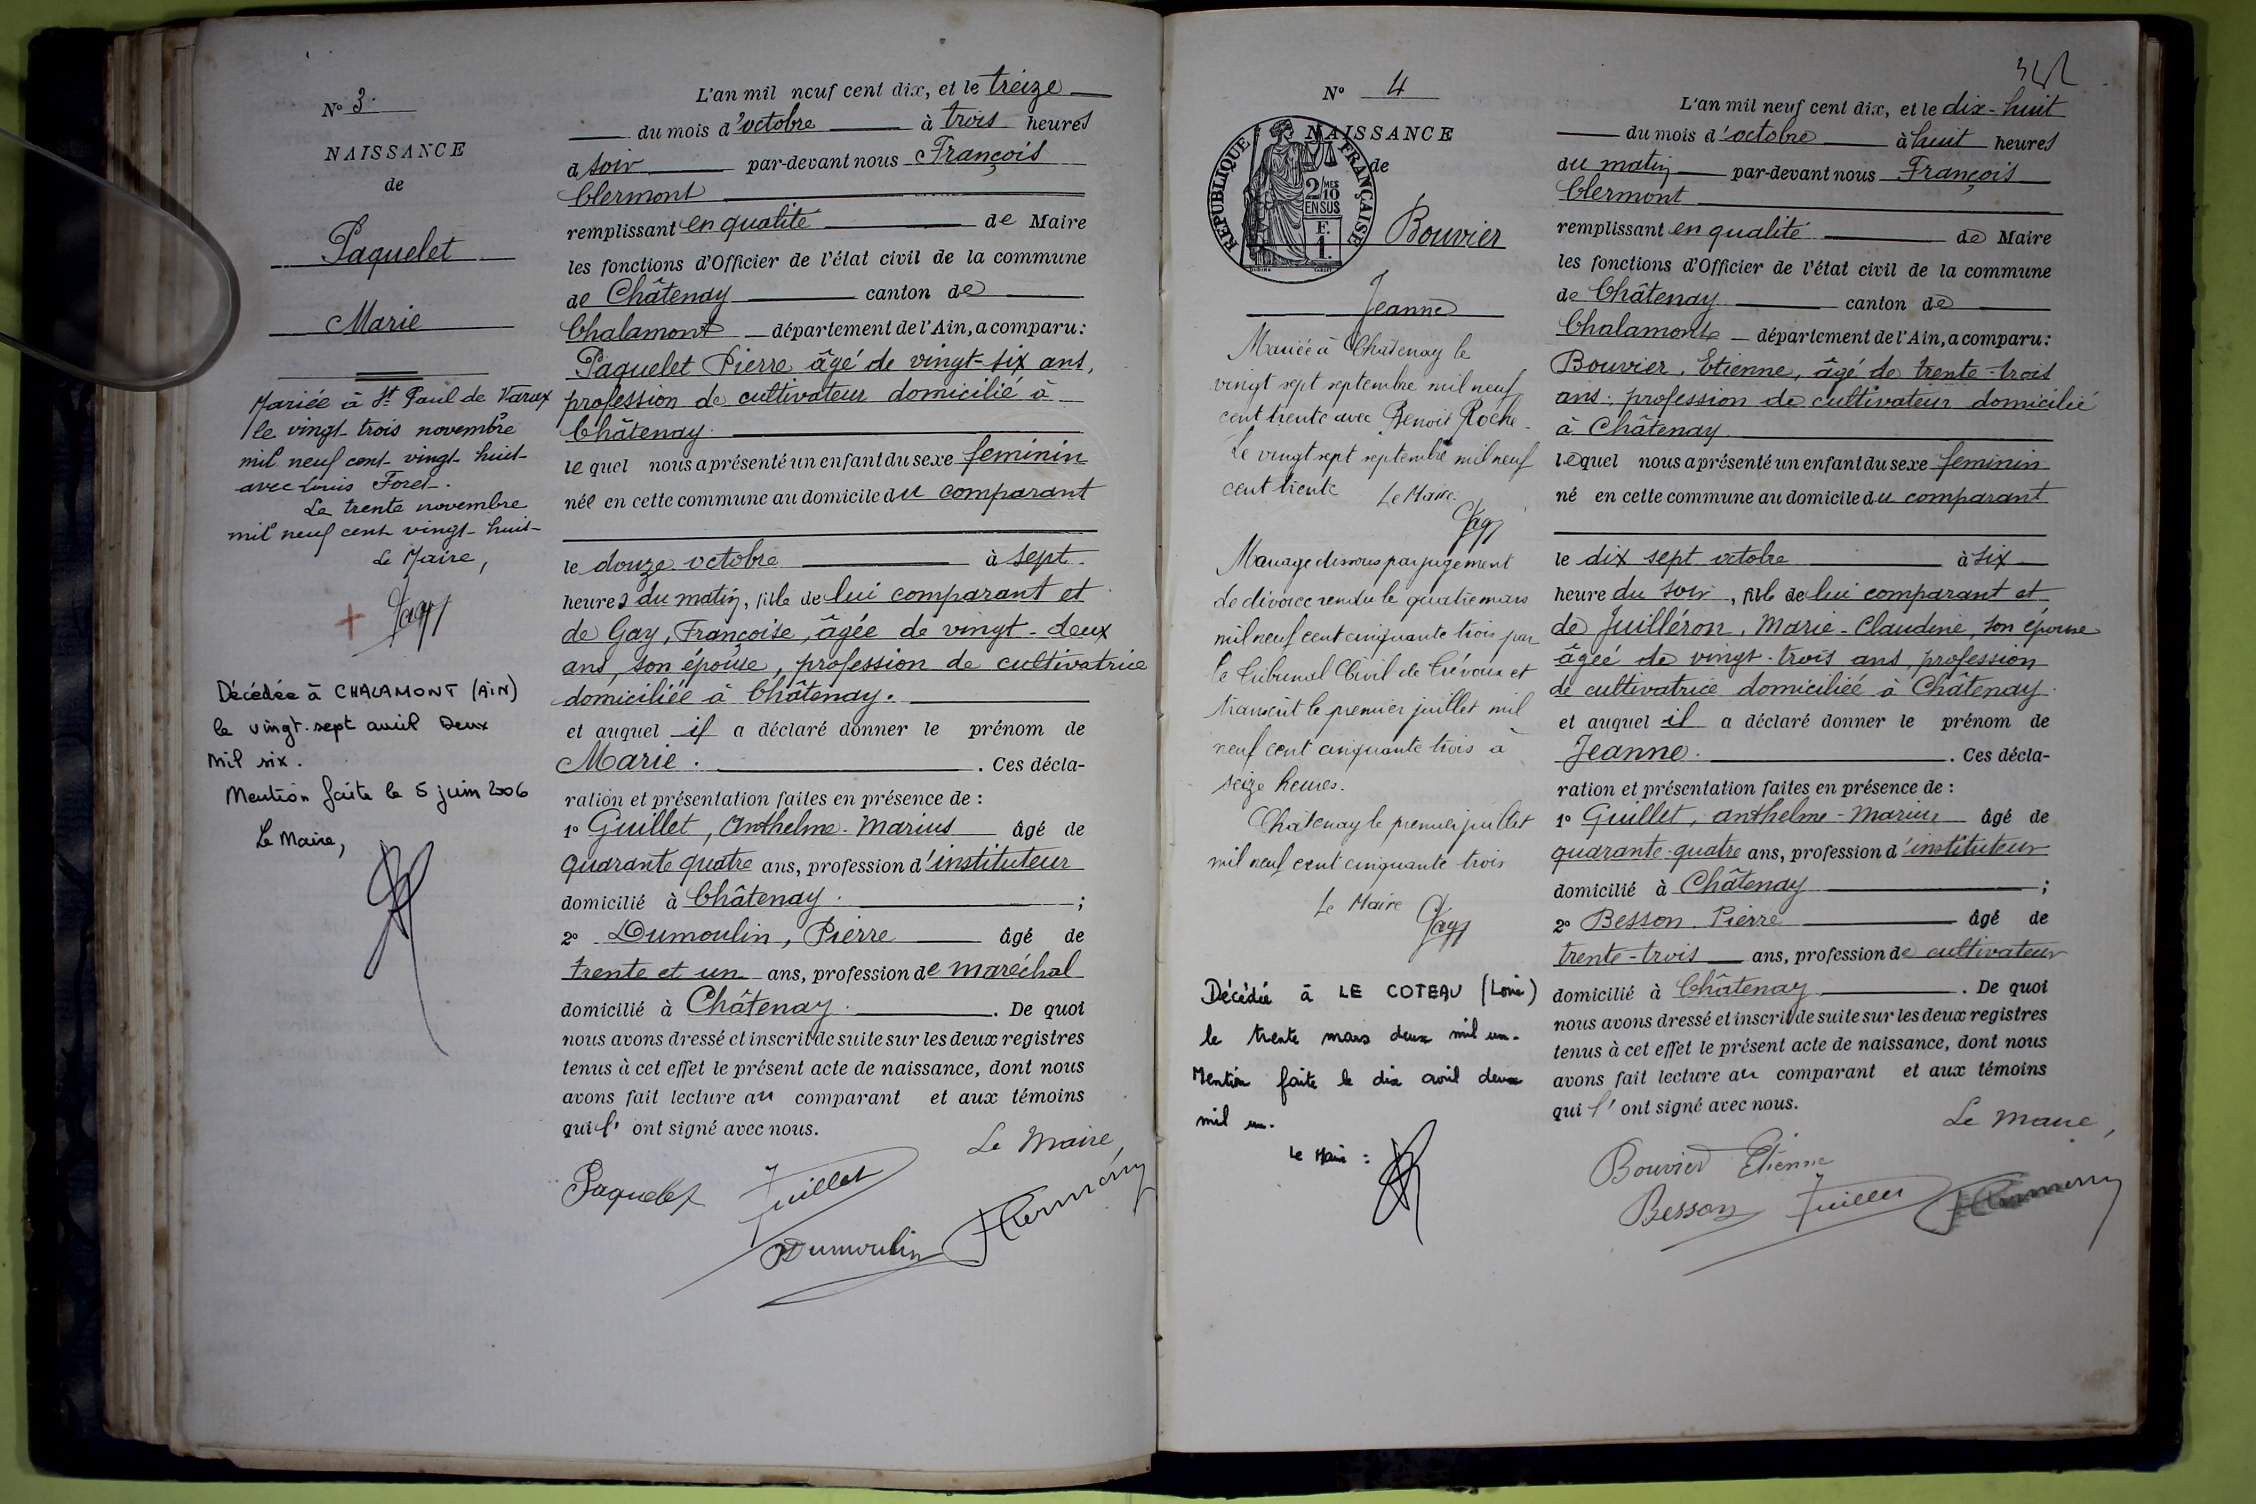 N° 3.
NAISSANCE
de
Paquelet
Marie
Mariée à St Paul de Varax
le vingt-trois novembre
mil neuf cent vingt-huit
avec Louis Foret.
Le trente novembre
mil neuf cent vingt-huit
Le Maire,
Décédée à CHALAMONT (AIN)
le vingt-sept avril Deux
mil six.
Mention faite le 5 juin 2006
Le Maire,
L'an mil neuf cent dix, et le treize
du mois d'octobre à trois heures
d soir par-devant nous François
Clermont
remplissant en qualité de Maire
les fonctions d'Officier de l'état civil de la commune
de Châtenay canton de
Chalamont département de l'Ain, a comparu:
Paquelet Pierre âgé de vingt-six ans,
profession de cultivateur domicilié à
Châtenay.
lequel nous a présenté un enfant du sexe feminin
née en cette commune au domicile du comparant
le douze octobre à sept
heures du matin, fille de lui comparant et
de Gay, Françoise, âgée de vingt-deux
ans, son épouse, profession de cultivatrice
domiciliée à Châtenay.
et auquel il a déclaré donner le prénom de
Marie. . Ces décla-
ration et présentation faites en présence de :
1° Guillet, Anthelme-Marius âgé de
quarante quatre ans, profession d'instituteur
domicilié à Châtenay. ;
2° Dumoulin, Pierre âgé de
trente et un ans, profession de maréchal
domicilié à Châtenay. . De quoi
nous avons dressé et inscrit de suite sur les deux registres
tenus à cet effet le présent acte de naissance, dont nous
avons fait lecture au comparant et aux témoins
qui l'ont signé avec nous.
Le Maire,
Paquelet Guillet
Dumoulin
N° 4
NAISSANCE
de
REPUBLIQUE FRANÇAISE
2/10 MES
EN SUS
F.
1.
Bouvier
Jeanne
Mariée à Châtenay le
vingt sept septembre mil neuf
cent trente avec Benoit Roche.
Le vingt sept septembre mil neuf
cent trente Le Maire.
Mariage dissous par jugement
de divorce rendu le quatre mars
mil neuf cent cinquante trois par
le Tribunal Civil de Trévoux et
transcrit le premier juillet mil
neuf cent cinquante trois à
seize heures.
Châtenay le premier juillet
mil neuf cent cinquante trois
Le Maire
Décédée à LE COTEAU (Loire)
le trente mars deux mil un.
Mention faite le dix avril deux
mil un.
Le Maire :
L'an mil neuf cent dix, et le dix-huit
du mois d'octobre à huit heures
du matin par-devant nous François
Clermont
remplissant en qualité de Maire
les fonctions d'Officier de l'état civil de la commune
de Châtenay canton de
Chalamont département de l'Ain, a comparu:
Bouvier, Etienne, âgé de trente-trois
ans, profession de cultivateur domicilié
à Châtenay
lequel nous a présenté un enfant du sexe feminin
né en cette commune au domicile du comparant
le dix sept octobre à six
heure du soir, fille de lui comparant et
de Juilléron, Marie-Claudine, son épouse
âgée de vingt-trois ans, profession
de cultivatrice domiciliée à Châtenay.
et auquel il a déclaré donner le prénom de
Jeanne. . Ces décla-
ration et présentation faites en présence de :
1° Guillet, anthelme-Marius âgé de
quarante-quatre ans, profession d'instituteur
domicilié à Châtenay ;
2° Besson, Pierre âgé de
trente-trois ans, profession de cultivateur
domicilié à Châtenay . De quoi
nous avons dressé et inscrit de suite sur les deux registres
tenus à cet effet le présent acte de naissance, dont nous
avons fait lecture au comparant et aux témoins
qui l'ont signé avec nous.
Le Maire,
Bouvier Etienne
Besson Guillet